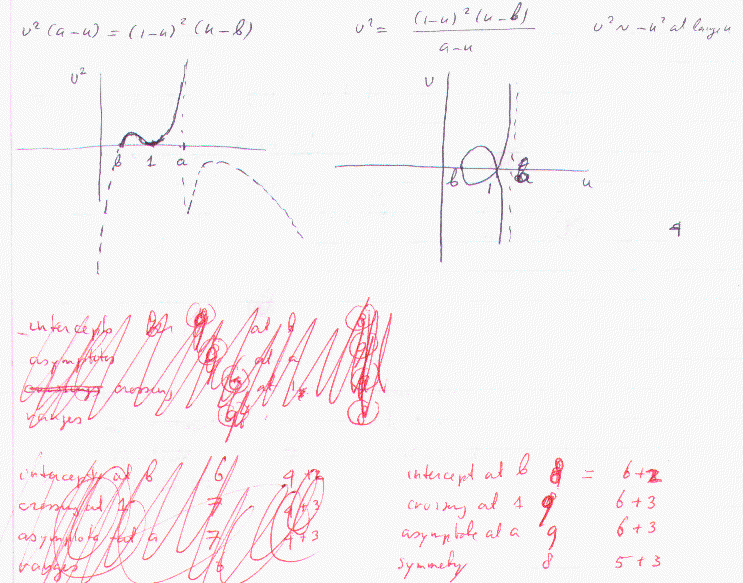 v²(a-u) = (1-u)²(u-b)
v² = (1-u)²(u-b) / a-u
v² ~ -u² at large u
v²
b 1 a
v
b 1 a u
4
intercepts at b
asymptotes at a
crossing at 1
ranges
intercept at b 6 4+2
crossing at 1 7 4+3
asymptote at a 7 4+3
ranges 6
intercept at b 8 = 6+2
crossing at 1 9 6+3
asymptote at a 9 6+3
symmetry 8 5+3